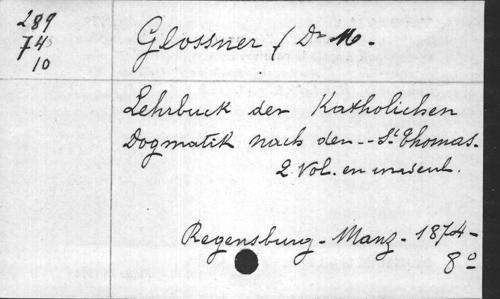 289
74
10
Glossner (Dr M.
Lehrbuck der Katholichen
Dogmatik nach den -- St Thomas.
2 Vol. en un seul.
Regensburg - Manz - 1874 -
8º